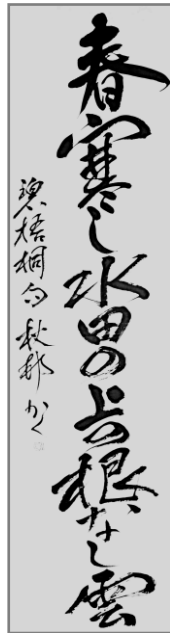 春寒し水田の上の根なし雲
碧梧桐句 秋邨かく